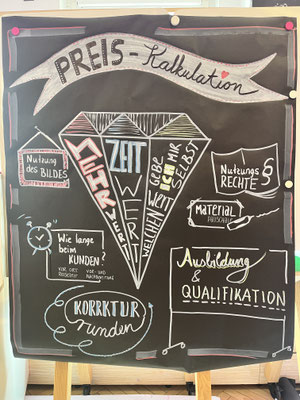 PREIS - Kalkulation
Nutzung
des BILDES
MEHR WERT
ZEIT
WERT
WELCHEN WERT
GEBE
ICH MIR
SELBST
Nutzungs
RECHTE §
Material
Wie lange
beim
KUNDEN?
VOR ORT
VOR- UND
Ausbildung
&
QUALIFIKATION
KORRKTUR
runden